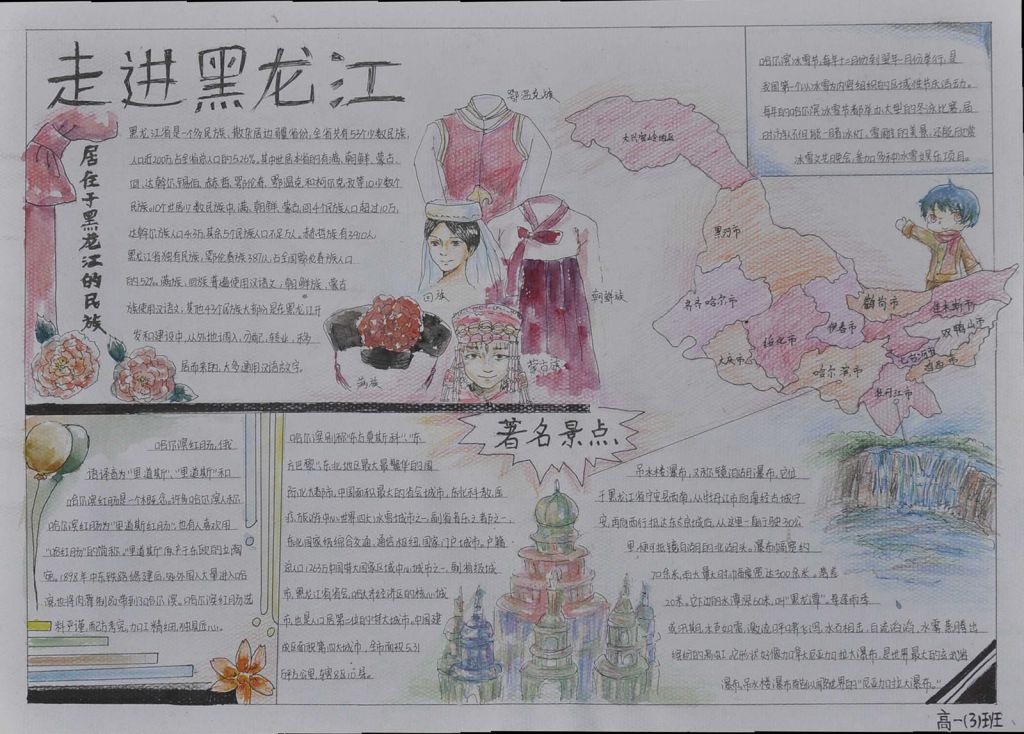 走进黑龙江
居住于黑龙江的民族
黑龙江省是一个多民族、散杂居边疆省份,全省共有53个少数民族,
人口近200万,占全省总人口的5.26%。其中世居本省的有满、朝鲜、蒙古、
回、达斡尔、锡伯、赫哲、鄂伦春、鄂温克和柯尔克孜等10个少数
民族。10个世居少数民族中,满、朝鲜、蒙古、回4个民族人口超过10万,
达斡尔族人口4.3万,其余5个民族人口不足万人。赫哲族有3910人,
黑龙江省独有民族,鄂伦春族3871人,占全国鄂伦春族人口
的52%。满族、回族普遍使用汉语文,朝鲜族、蒙古
族使用汉语文,其他43个民族大部分是在黑龙江开
发和建设中,从外地调入,分配,转业,
居而来的,大多通用汉语言文字。
鄂温克族
回族
朝鲜族
满族
蒙古族
哈尔滨冰雪节,每年十二月份到翌年一月份举行,是
我国第一个以冰雪为内容组织的区域性节庆活动。
每年的哈尔滨冰雪节都举办大型的冬泳比赛,届
时市人不但能一睹冰灯、雪雕的美景,还能欣赏
冰雪文艺晚会,参加多种冰雪娱乐项目。
大兴安岭地区
黑河市
齐齐哈尔市
鹤岗市
佳木斯市
伊春市
双鸭山市
绥化市
七台河市
大庆市
鸡西市
哈尔滨市
牡丹江市
著名景点
哈尔滨红肠,俄
语译音为“里道斯”,“里道斯”和
哈尔滨红肠是一个概念,许多哈尔滨人称
哈尔滨红肠为“里道斯红肠”,也有人喜欢用
“哈红肠”的简称。“里道斯”原产于东欧的立陶
宛。1898年中东铁路修建后,外国人大量进入哈
滨,也将肉灌制品带到了哈尔滨。哈尔滨红肠选
料严谨,配方考究,加工精细,独具匠心。
哈尔滨别称“东方莫斯科”、“东
方巴黎”,东北地区最大最繁华的国
际化大都市,中国面积最大的省会城市,东北科教、医
疗、旅游中心,世界四大冰雪城市之一,音乐之都之一,
东北国家级综合交通、通信枢纽,国家门户城市。户籍
总人口1263万中国特大国家区域中心城市之一,副省级城
市,黑龙江省省会,哈大齐经济区的核心城
市,也是人口居第二位的特大城市,中国建
成区面积第四大城市,全市面积5.31
万平方公里,辖8区10县。
吊水楼瀑布,又称镜泊湖瀑布,它位
于黑龙江省宁安县西南,从牡丹江市向南经古城宁
安,再向西行抵达东京城后,从这里一直行驶30公
里,便可抵镜泊湖的北湖头。瀑布幅宽约
70余米,雨大量大时,幅宽达300余米。落差
20米。它下边的水潭深60米,叫“黑龙潭”。每逢雨季
瀑布。吊水楼瀑布
高一(3)班